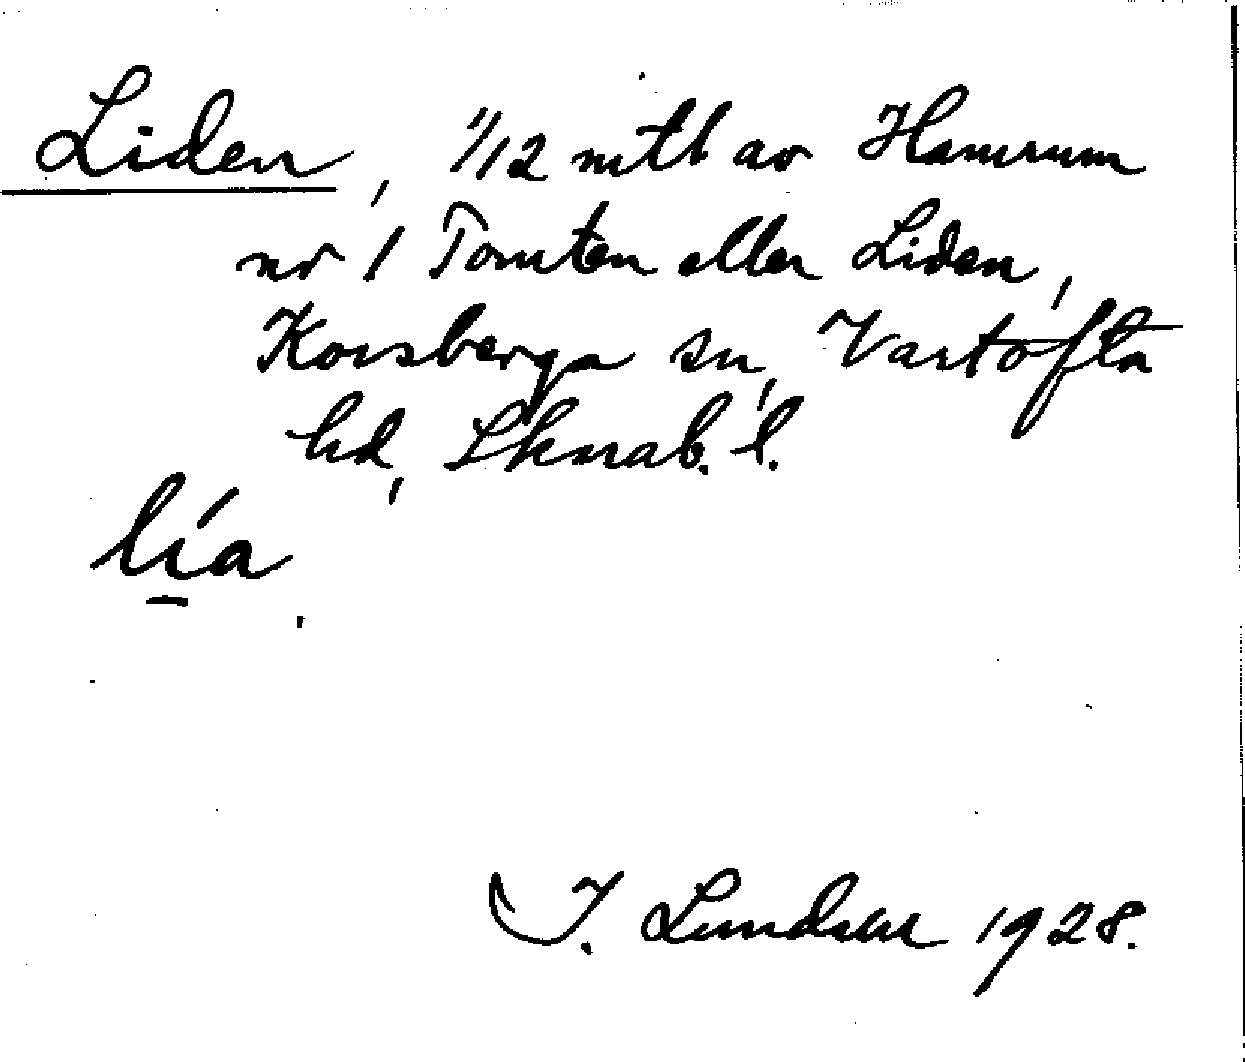 Liden, 1/12 mtl av Hamrum
nr 1 Tomten eller Liden,
Korsberga sn, Vartofta
hd, Skarab. l.
lía
I. Lundahl 1928.